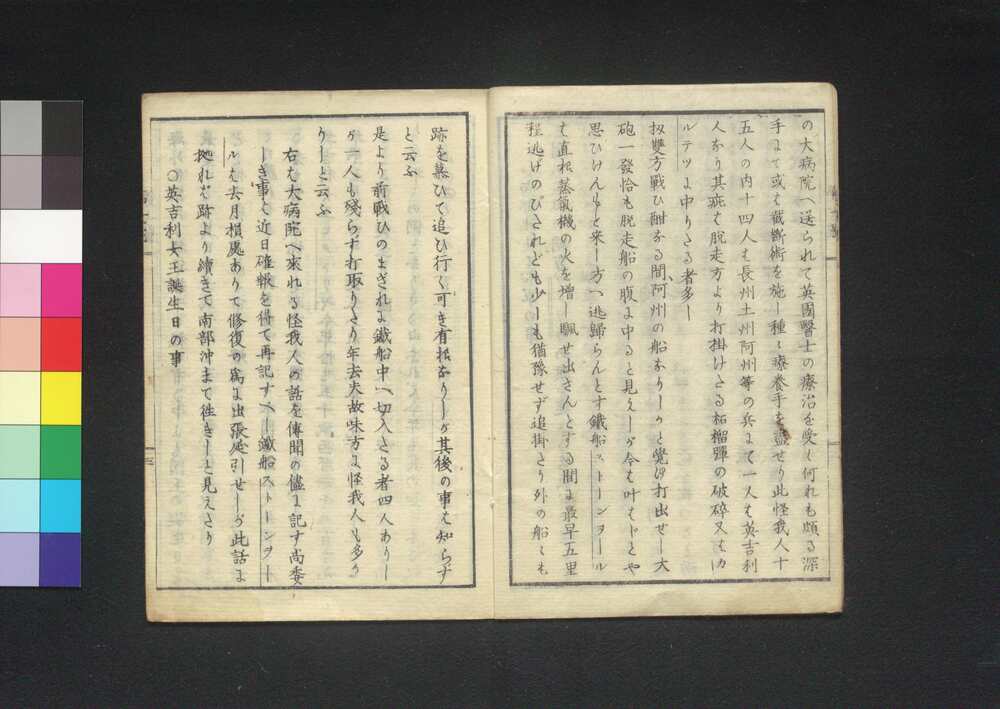 の大病院へ送られて英國醫士の療治を受く何れも頗る深
手にて或は截斷術を施し種々療養手を盡せり此怪我人十
五人の内十四人は長州土州阿州等の兵にて一人は英吉利
人なり其疵は脱走方より打掛けたる柘榴彈の破碎又はカ
ルテツに中りたる者多し
扨雙方戰ひ酣なる間阿州の船なりしかと覺ゆ打出せし大
砲一發恰も脱走船の腹に中ると見えしが今は叶はじとや
思ひけんもと來し方へ逃歸らんとす鐵船ストーンヲール
は直樣蒸氣機の火を増し馳せ出さんとする間に最早五里
程逃げのびされども少しも猶豫せず追掛たり外の船々も
跡を慕ひて追ひ行く可き有樣なりしが其後の事は知らず
と云ふ
是より前戰ひのまぎれに鐵船中へ切入たる者四人ありし
が一人も殘らず打取りたり年去夫故味方に怪我人も多か
りしと云ふ
右は大病院へ來れる怪我人の話を傳聞の儘に記す尚委
しき事は近日確報を得て再記すべし鐵船ストーンヲー
ルは去月損處ありて修復の爲に出張延引せしが此話に
拠れば跡より續きて南部沖まて往きしと見えたり
○英吉利女王誕生日の事